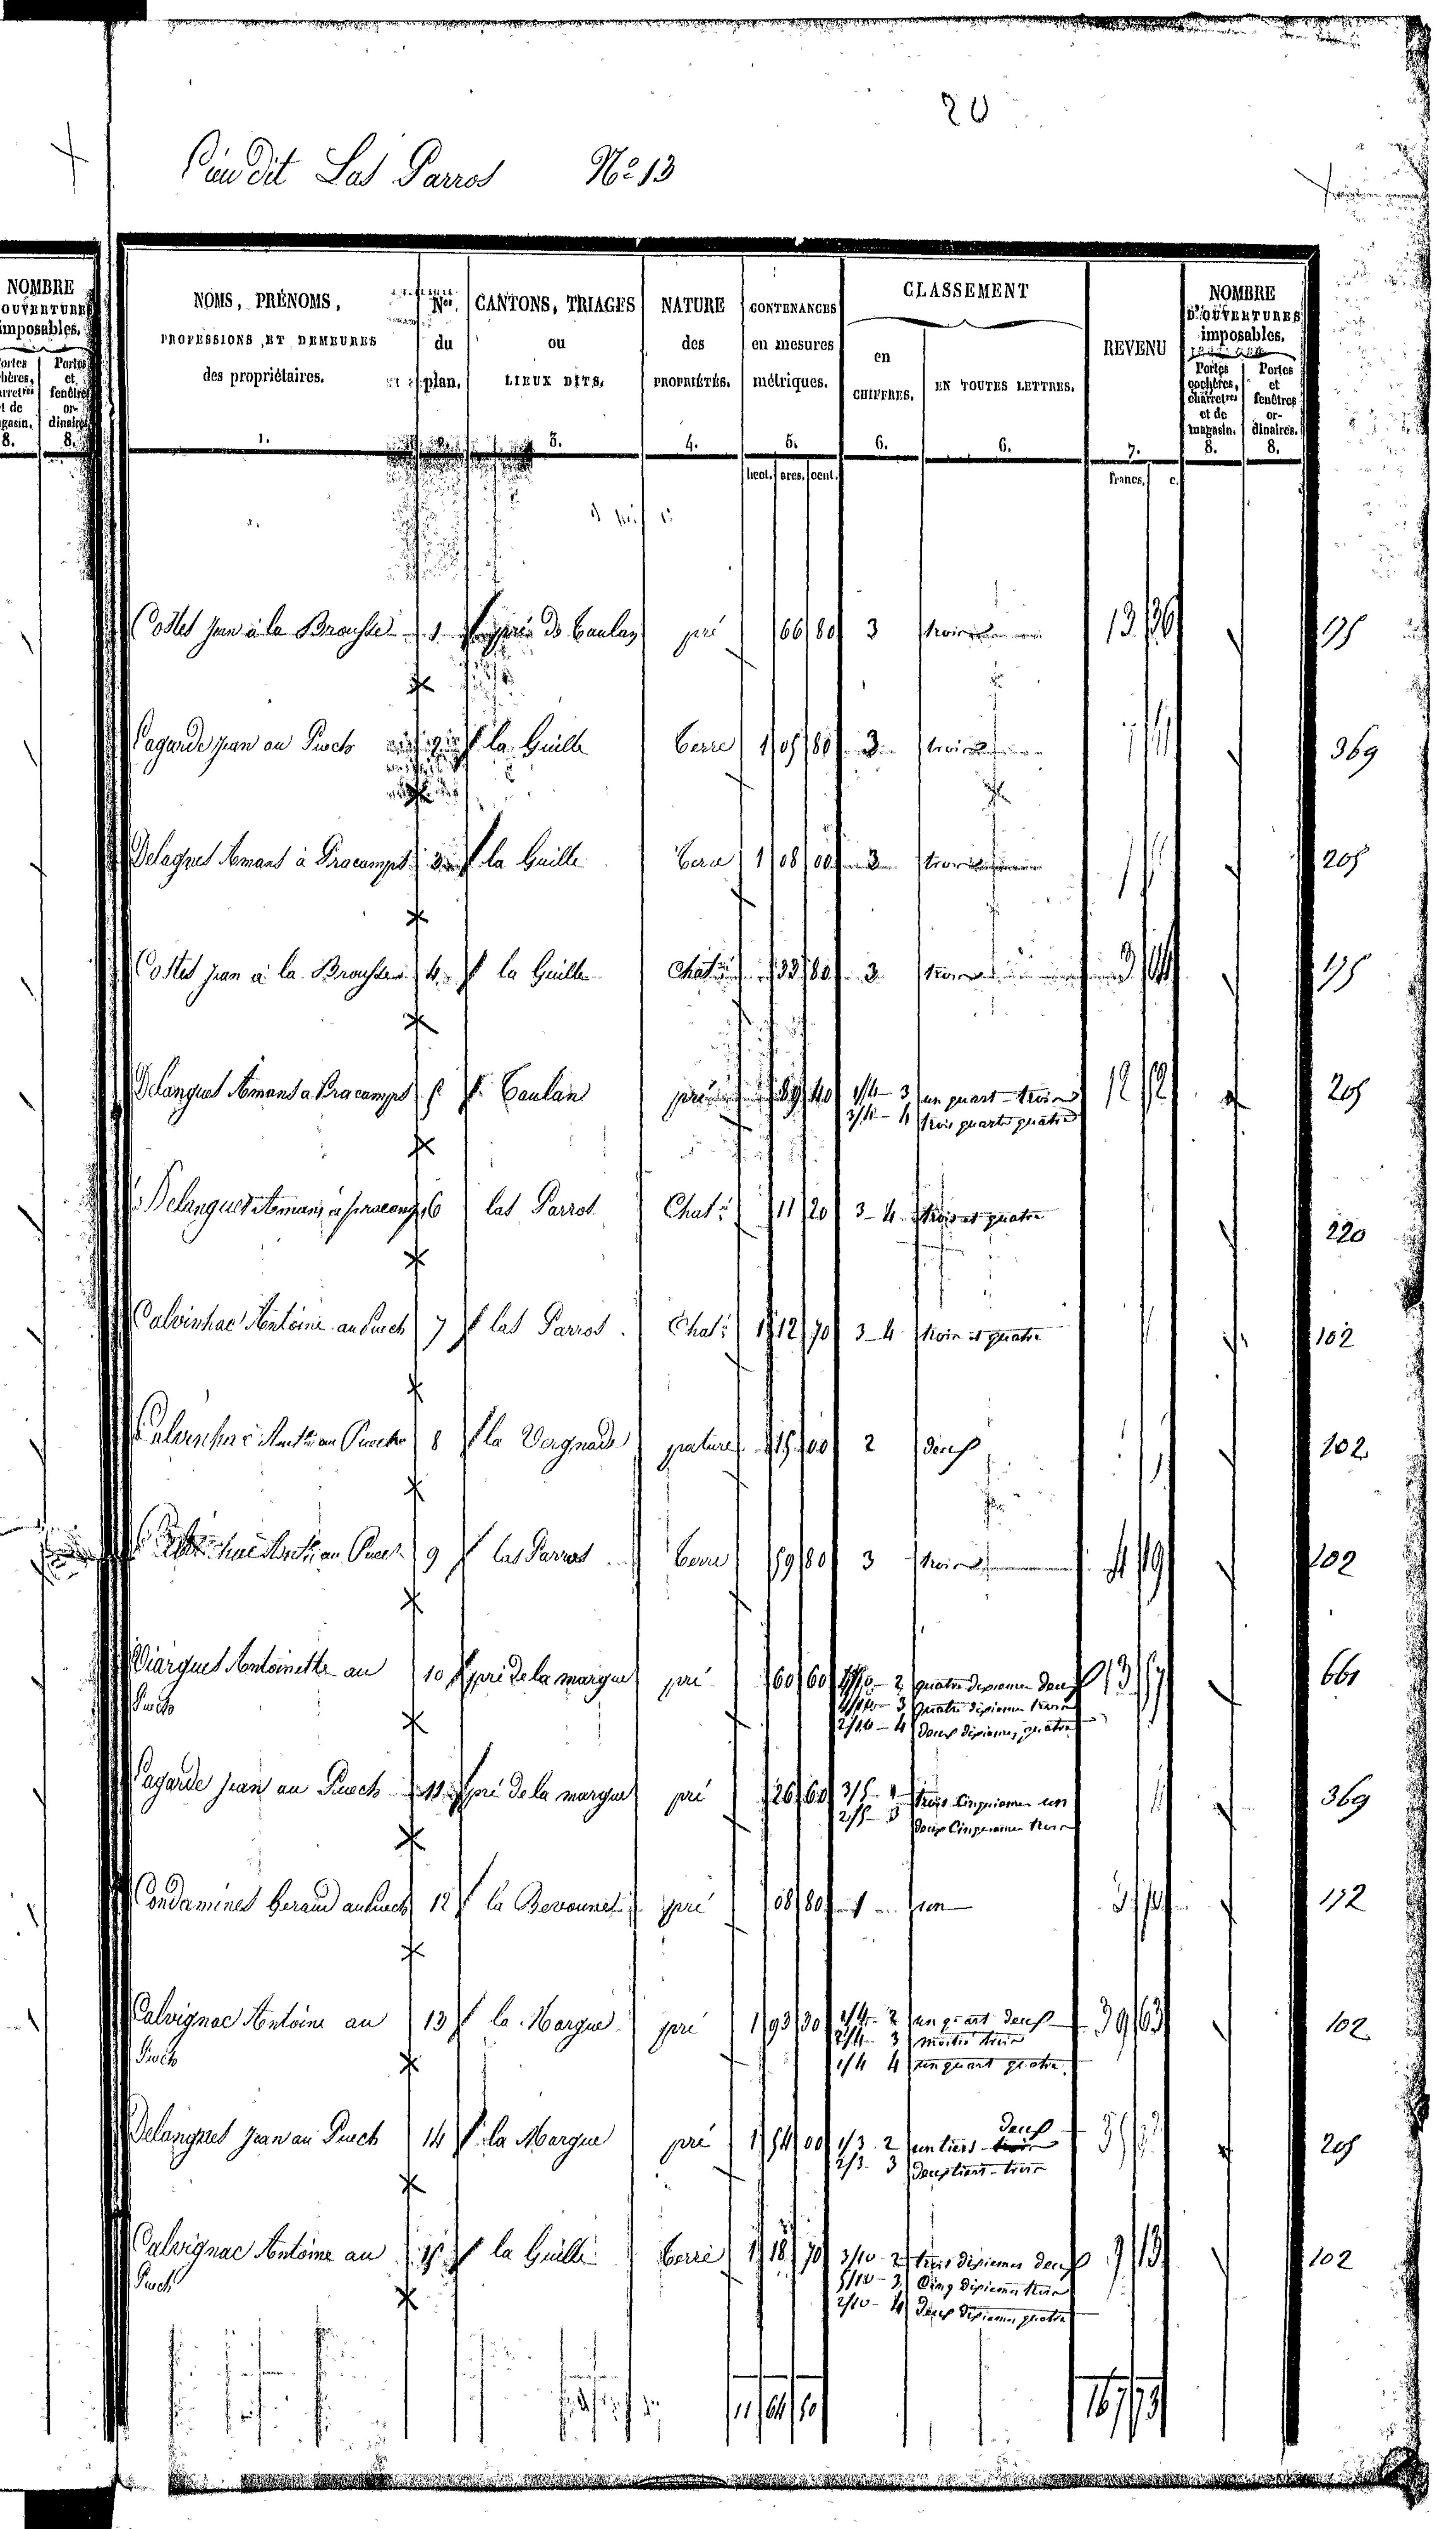 20
Lieu dit Las Parros N° 13
NOMBRE
D'OUVERTURES
imposables.
NOMS, PRÉNOMS,
PROFESSIONS ET DEMEURES
des propriétaires.
1.
Nos.
du
plan.
CANTONS, TRIAGES
ou
LIEUX DITS.
3.
NATURE
des
PROPRIÉTÉS.
4.
CONTENANCES
en mesures
métriques.
5.
hect. ares. cent.
CLASSEMENT
en
CHIFFRES.
6.
EN TOUTES LETTRES.
6.
REVENU
7.
francs. c.
NOMBRE
D'OUVERTURES
imposables.
Portes
cochères,
charretres
et de
magasin.
8.
Portes
et
fenêtres
or-
dinaires.
8.
Costes Jean à la Brousse 1 pré de Caulan pré 66 80 3 trois 13 36 175
Lagarde Jean au Puech la Guille terre 1 05 80 3 trois 369
Delagnes Amans à Pracamps 3 la Guille terre 1 08 00 3 trois 205
Costes Jean à la Brousse 4 la Guille Chat 33 80 3 trois 3 04 175
Delangnes Amans a Pracamps 5 Caulan pré 89 40 1/4 - 3 un quart - trois 12 52 205
3/4 - 4 trois quarts quatre
Delangnes Amans à pracamps 6 las Parros Chat 11 20 3-4 trois et quatre 220
Calvinhac Antoine au Puech 7 las Parros Chat 1 12 70 3-4 trois et quatre 102
Calvinhac Ant au Puech 8 la Vergnade pature 15 00 2 deux 102
au Puech 9 las Parros terre 59 80 3 trois 4 19 102
Viargues Antoinette au 10 pré de la margue pré 60 60 4/10 - 2 quatre dixiemes deux 13 57 661
Puech 4/10 - 3 quatre dixiemes trois
2/10 - 4 deux dixiemes, quatre
Lagarde Jean au Puech 11 pré de la margue pré 26 60 3/5 - 1 trois Cinquiemes un 369
2/5 - 3 deux Cinquiemes trois
Condamines Geraud au Puech 12 pré 08 80 1 un 172
Calvignac Antoine au 13 la Margue pré 1 93 30 1/4 - 2 un quart deux 39 63 102
Puech 2/4 - 3 moitié trois
1/4 4 un quart quatre
Delangnes Jean au Puech 14 la Margue pré 1 54 00 1/3 - 2 un tiers deux 205
2/3 - 3 deux tiers - trois
Calvignac Antoine au 15 la Guille terre 1 18 70 3/10 - 2 trois dixiemes deux 9 13 102
Puech 5/10 - 3 Cinq dixiemes trois
2/10 - 4 deux dixiemes quatre
11 64 50 167 73